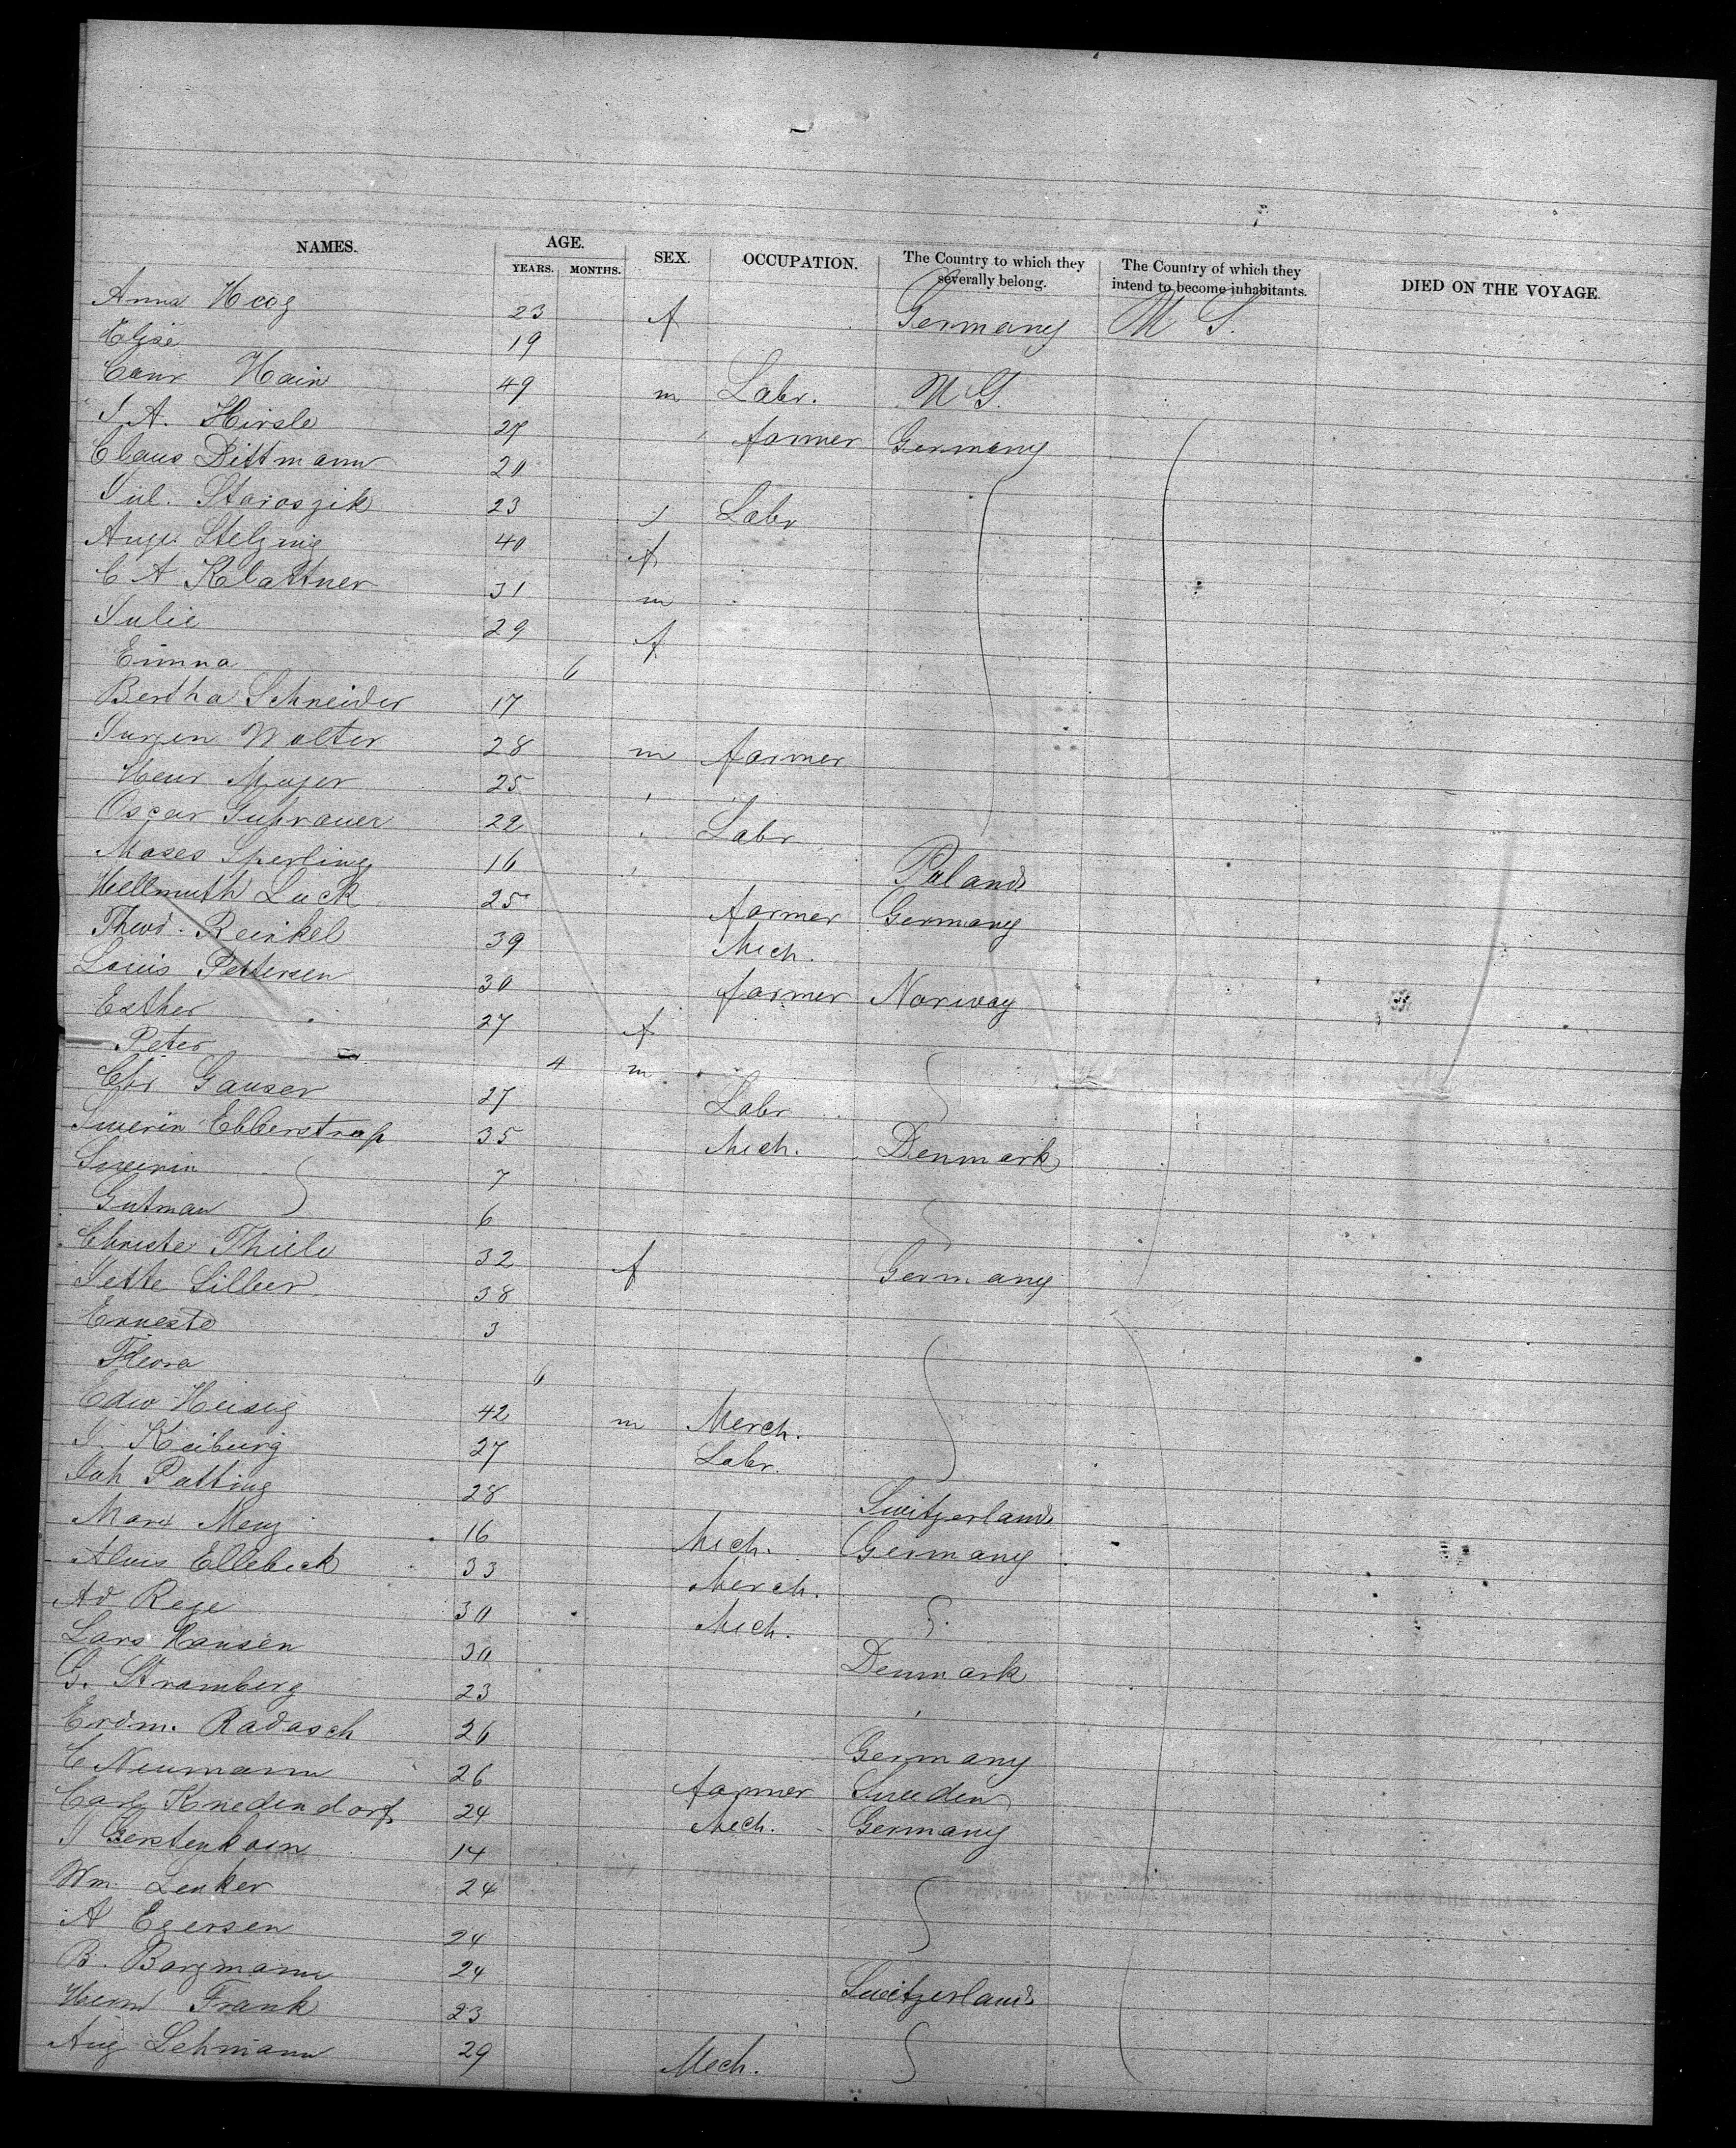 NAMES. AGE. YEARS. MONTHS. SEX. OCCUPATION. The Country to which they severally belong. The Country of which they intend to become inhabitants. DIED ON THE VOYAGE.
Anna Hoog 23 f Germany U S.
Elise 19
Conr Hain 49 m Labr. U S.
J. A. Hirsle 27 farmer Germany
Claus Dittmann 20
Jul. Staroszik 23 Labr
Aug. Stelznig 40 f
C A Klattner 31 m
Julie 29 f
Emma 6
Bertha Schneider 17
Jurgen Wolter 28 m farmer
Henr Meyer 25
Oscar Guhrauer 22 Labr
Moses Sperling 16 Poland
Hellmuth Luck 25 farmer Germany
Theod. Reinkel 39 Mech.
Louis Pettersen 30 farmer Norway
Esther 27 f
Peter 4 m
Chr Gauser 27 Labr
Swerin Ebberstrup 35 Mech. Denmark
Swerin 7
Gutman 6
Christe Thiele 32 f Germany
Jette Silber 38
Ernest 3
Flora 6
Edw Heisig 42 m Merch.
J. Keiburg 27 Labr.
Joh Patting 28 Switzerland
Marx Meny 16 Mech. Germany
Alois Ellebeck 33 Merch.
Ad Rege 30 Mech.
Lars Hansen 30 Denmark
G. Stramberg 23
Erdm. Radasch 26 Germany
C Neumann 26 farmer Sweden
Carl Kniedendorf 24 Mech. Germany
J Gerstenkorn 14
Wm. Lenker 24
A Egersen 24
B. Bargmann 24 Switzerland
Herm Frank 23
Aug Lehmann 29 Mech.